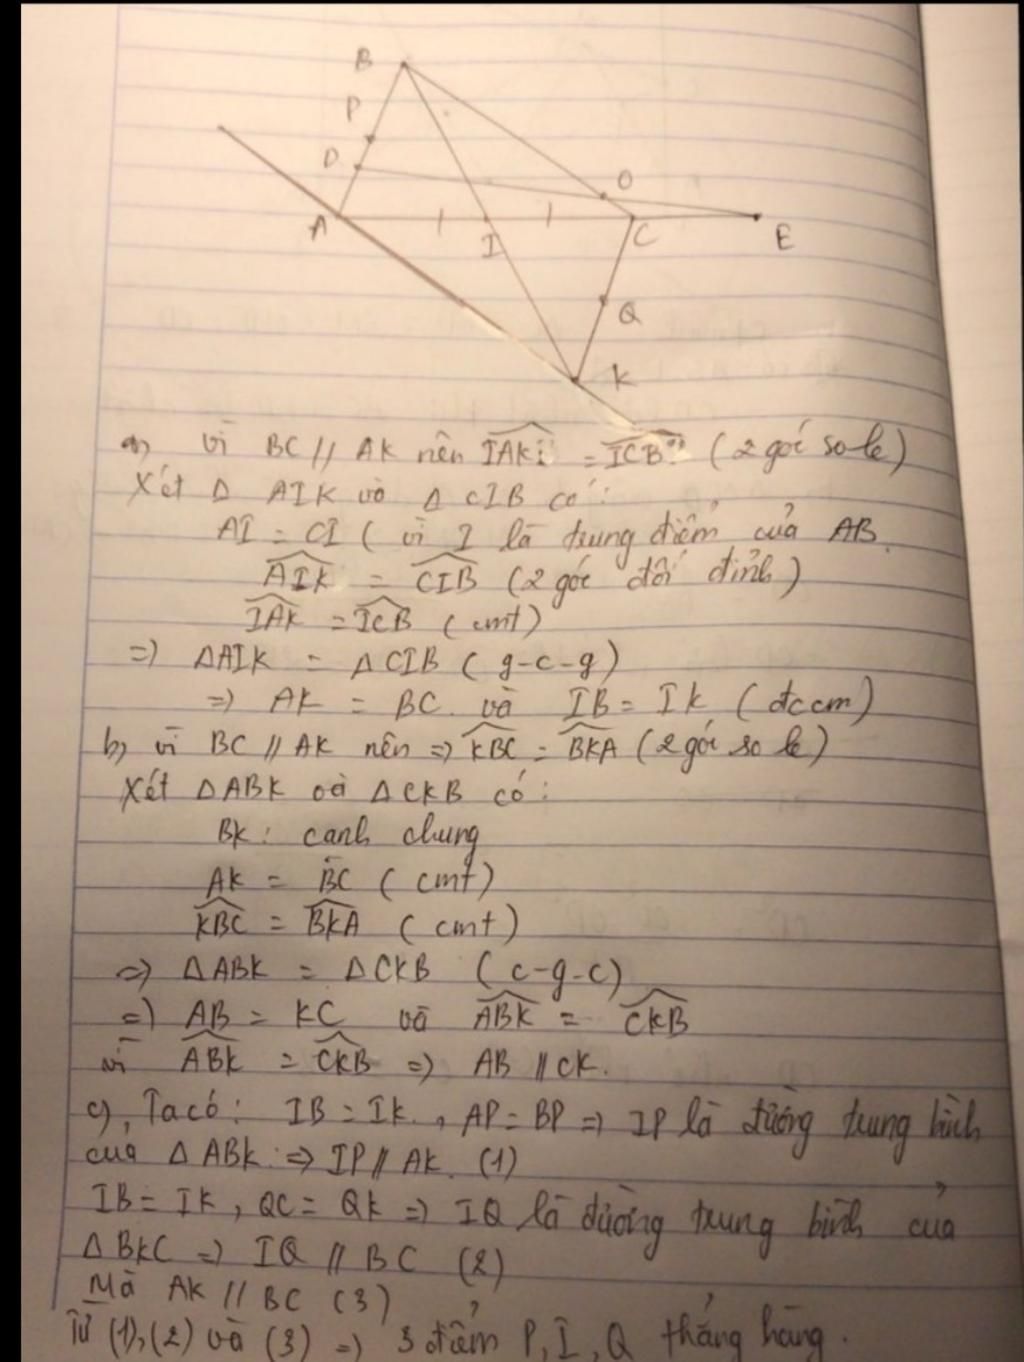 B
P
D
O
A
I
C
E
Q
K
a, vì BC // AK nên IAK = ICB (2 góc so le)
Xét Δ AIK và Δ CIB có:
AI = CI ( vì I là trung điểm của AB.
AIK = CIB (2 góc đối đỉnh)
IAK = ICB (cmt)
=) ΔAIK = ΔCIB ( g-c-g)
=) AK = BC và IB = IK ( đccm)
b, vì BC // AK nên =) KBC = BKA (2 góc so le)
Xét ΔABK và ΔCKB có:
BK: cạnh chung
AK = BC ( cmt)
KBC = BKA ( cmt)
=) ΔABK = ΔCKB ( c-g-c)
=) AB = KC và ABK = CKB
vì ABK = CKB =) AB // CK.
c, Ta có: IB = IK, AP = BP =) IP là đường trung bình
của Δ ABK. => IP // AK. (1)
IB = IK, QC = QK =) IQ là đường trung bình của
Δ BKC =) IQ // BC (2)
Mà AK // BC (3)
Từ (1), (2) và (3) =) 3 điểm P, I, Q thẳng hàng.